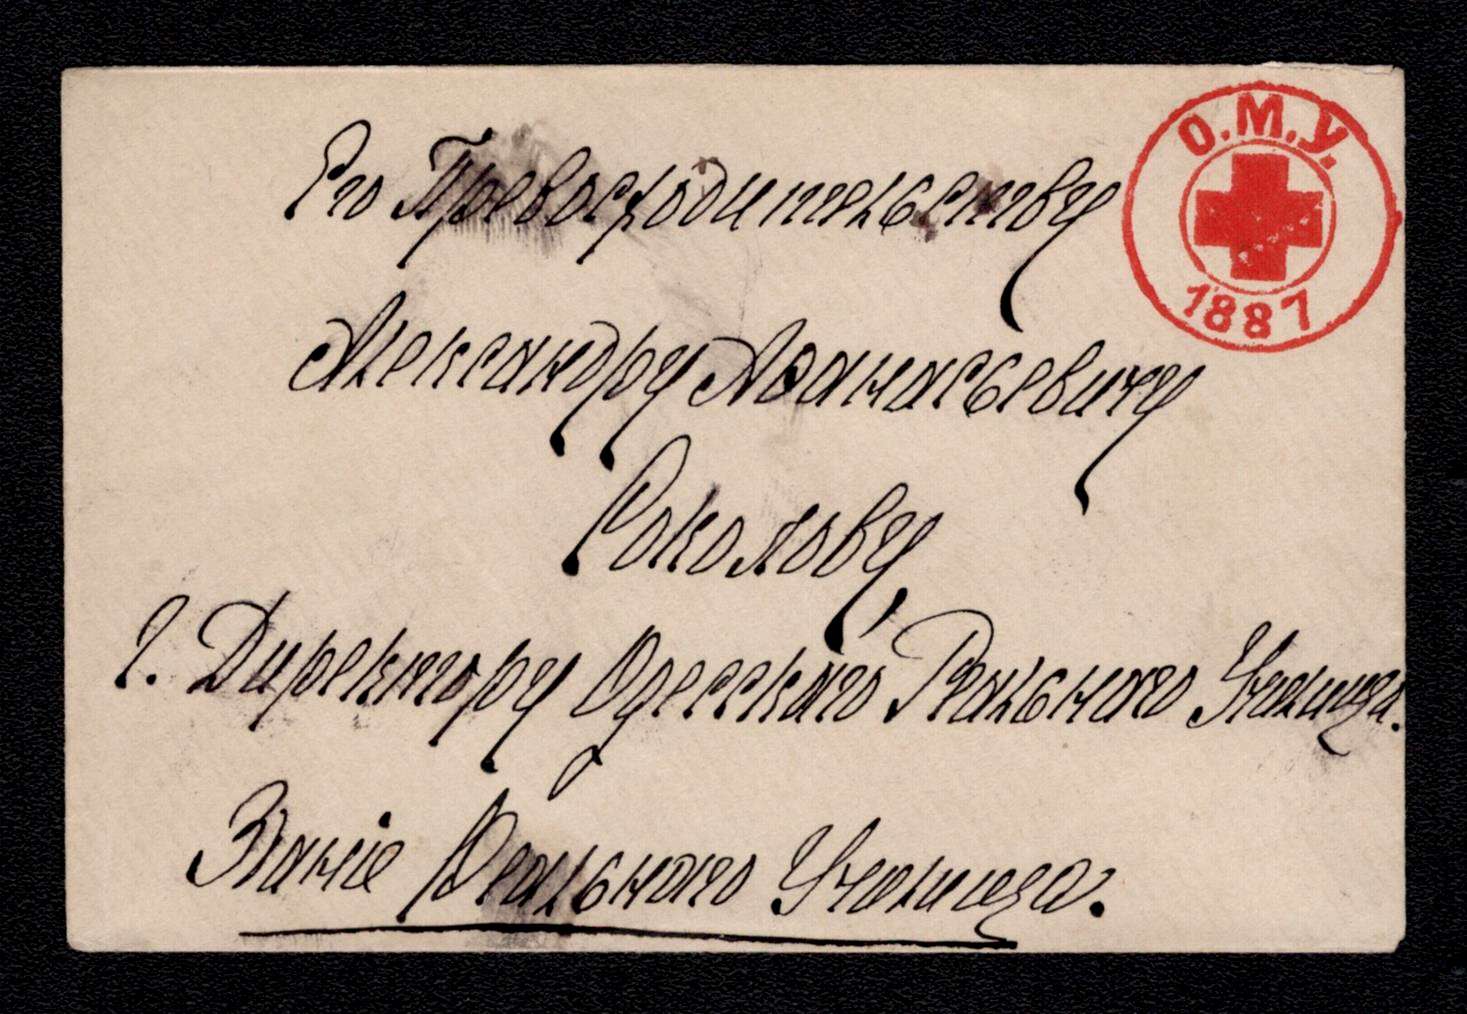 О.М.У.
1887
Его Превосходительству
Александру Афанасьевичу
Соколову,
Г. Директору Одесского Реального Училища.
Зданіе Реального Училища.